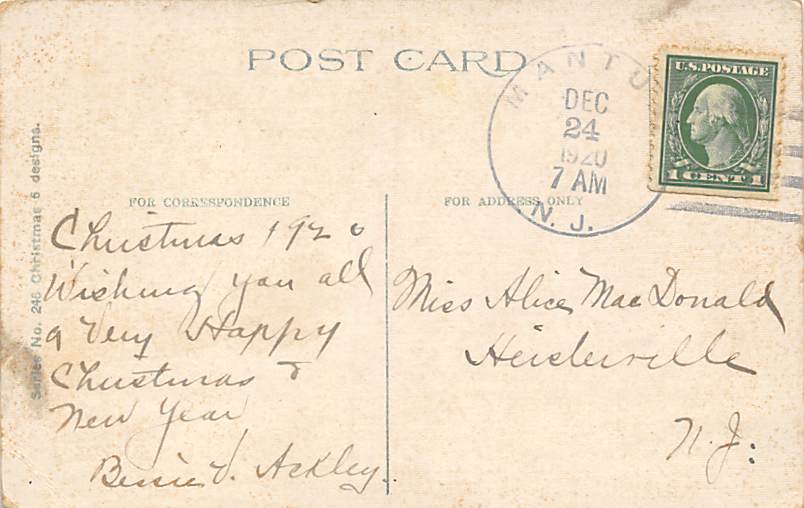 POST CARD
MANTU
DEC
24
1920
7 AM
N. J.
U.S. POSTAGE
1 CENT 1
Series No. 246 Christmas 6 designs.
FOR CORRESPONDENCE
Christmas 1920
Wishing you all
a Very Happy
Christmas &
New Year
Bessie V. Ackley.
FOR ADDRESS ONLY
Miss Alice MacDonald
Heislerville
N. J.